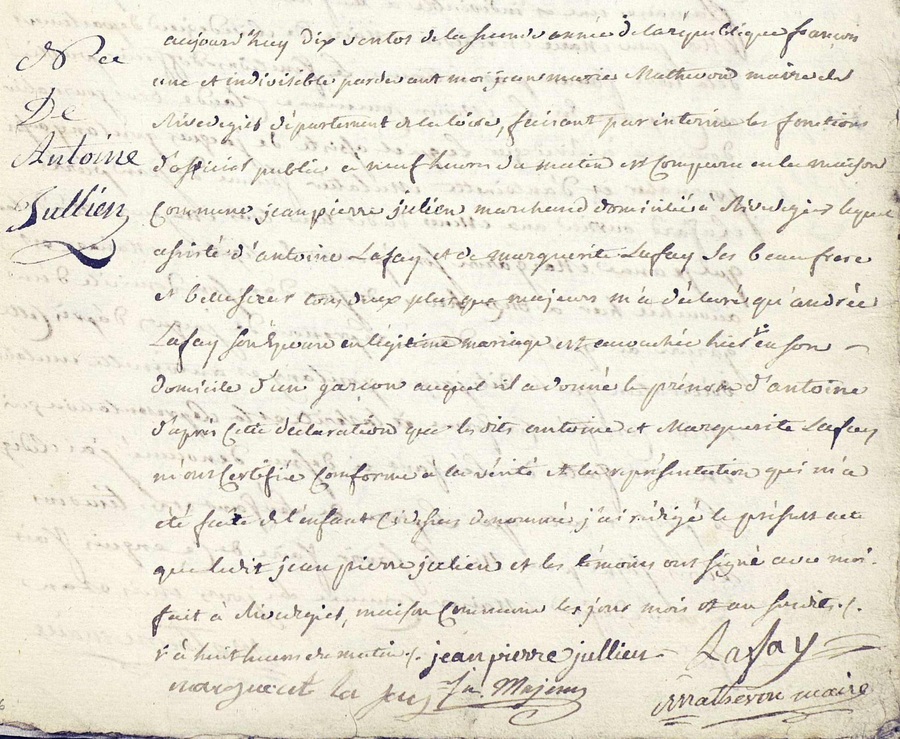 Nce
De
Antoine
Jullien
aujourd'huy dix ventos de la seconde année de la république françois
une et indivisible pardevant moi jean marie Mathevon maire de
Rivedegiet département de la loire, faisant par interim les fonctions
d'officier public a neuf heures du matin est Comparu en la maison
Commune jean pierre julien marchand domicilié à Rivedegier lequel
assisté d'antoine Lafay et de marguerite Lafay ses beau frere
et belle soeur tous deux plus que majeurs m'a déclaré qu'andrée
Lafay son Epouse en légitime mariage est accouchée hier en son
domicile d'un garçon auquel il a donné le prénom d'antoine
d'après Cette déclaration que lesdits antoine et Marguerite Lafay
m'ont Certifié Conforme à la vérité et la représentation qui m'a
été faite de l'enfant Cidessus dénommé, j'ai rédigé le présent acte
que ledit jean pierre julien et les témoins ont signé avec moi.
fait à Rivedegiet, maison Commune les jour mois et an susdits ./.
à huit heures du matin ./. jean pierre jullien Lafay
marguerit la Mathevon maire